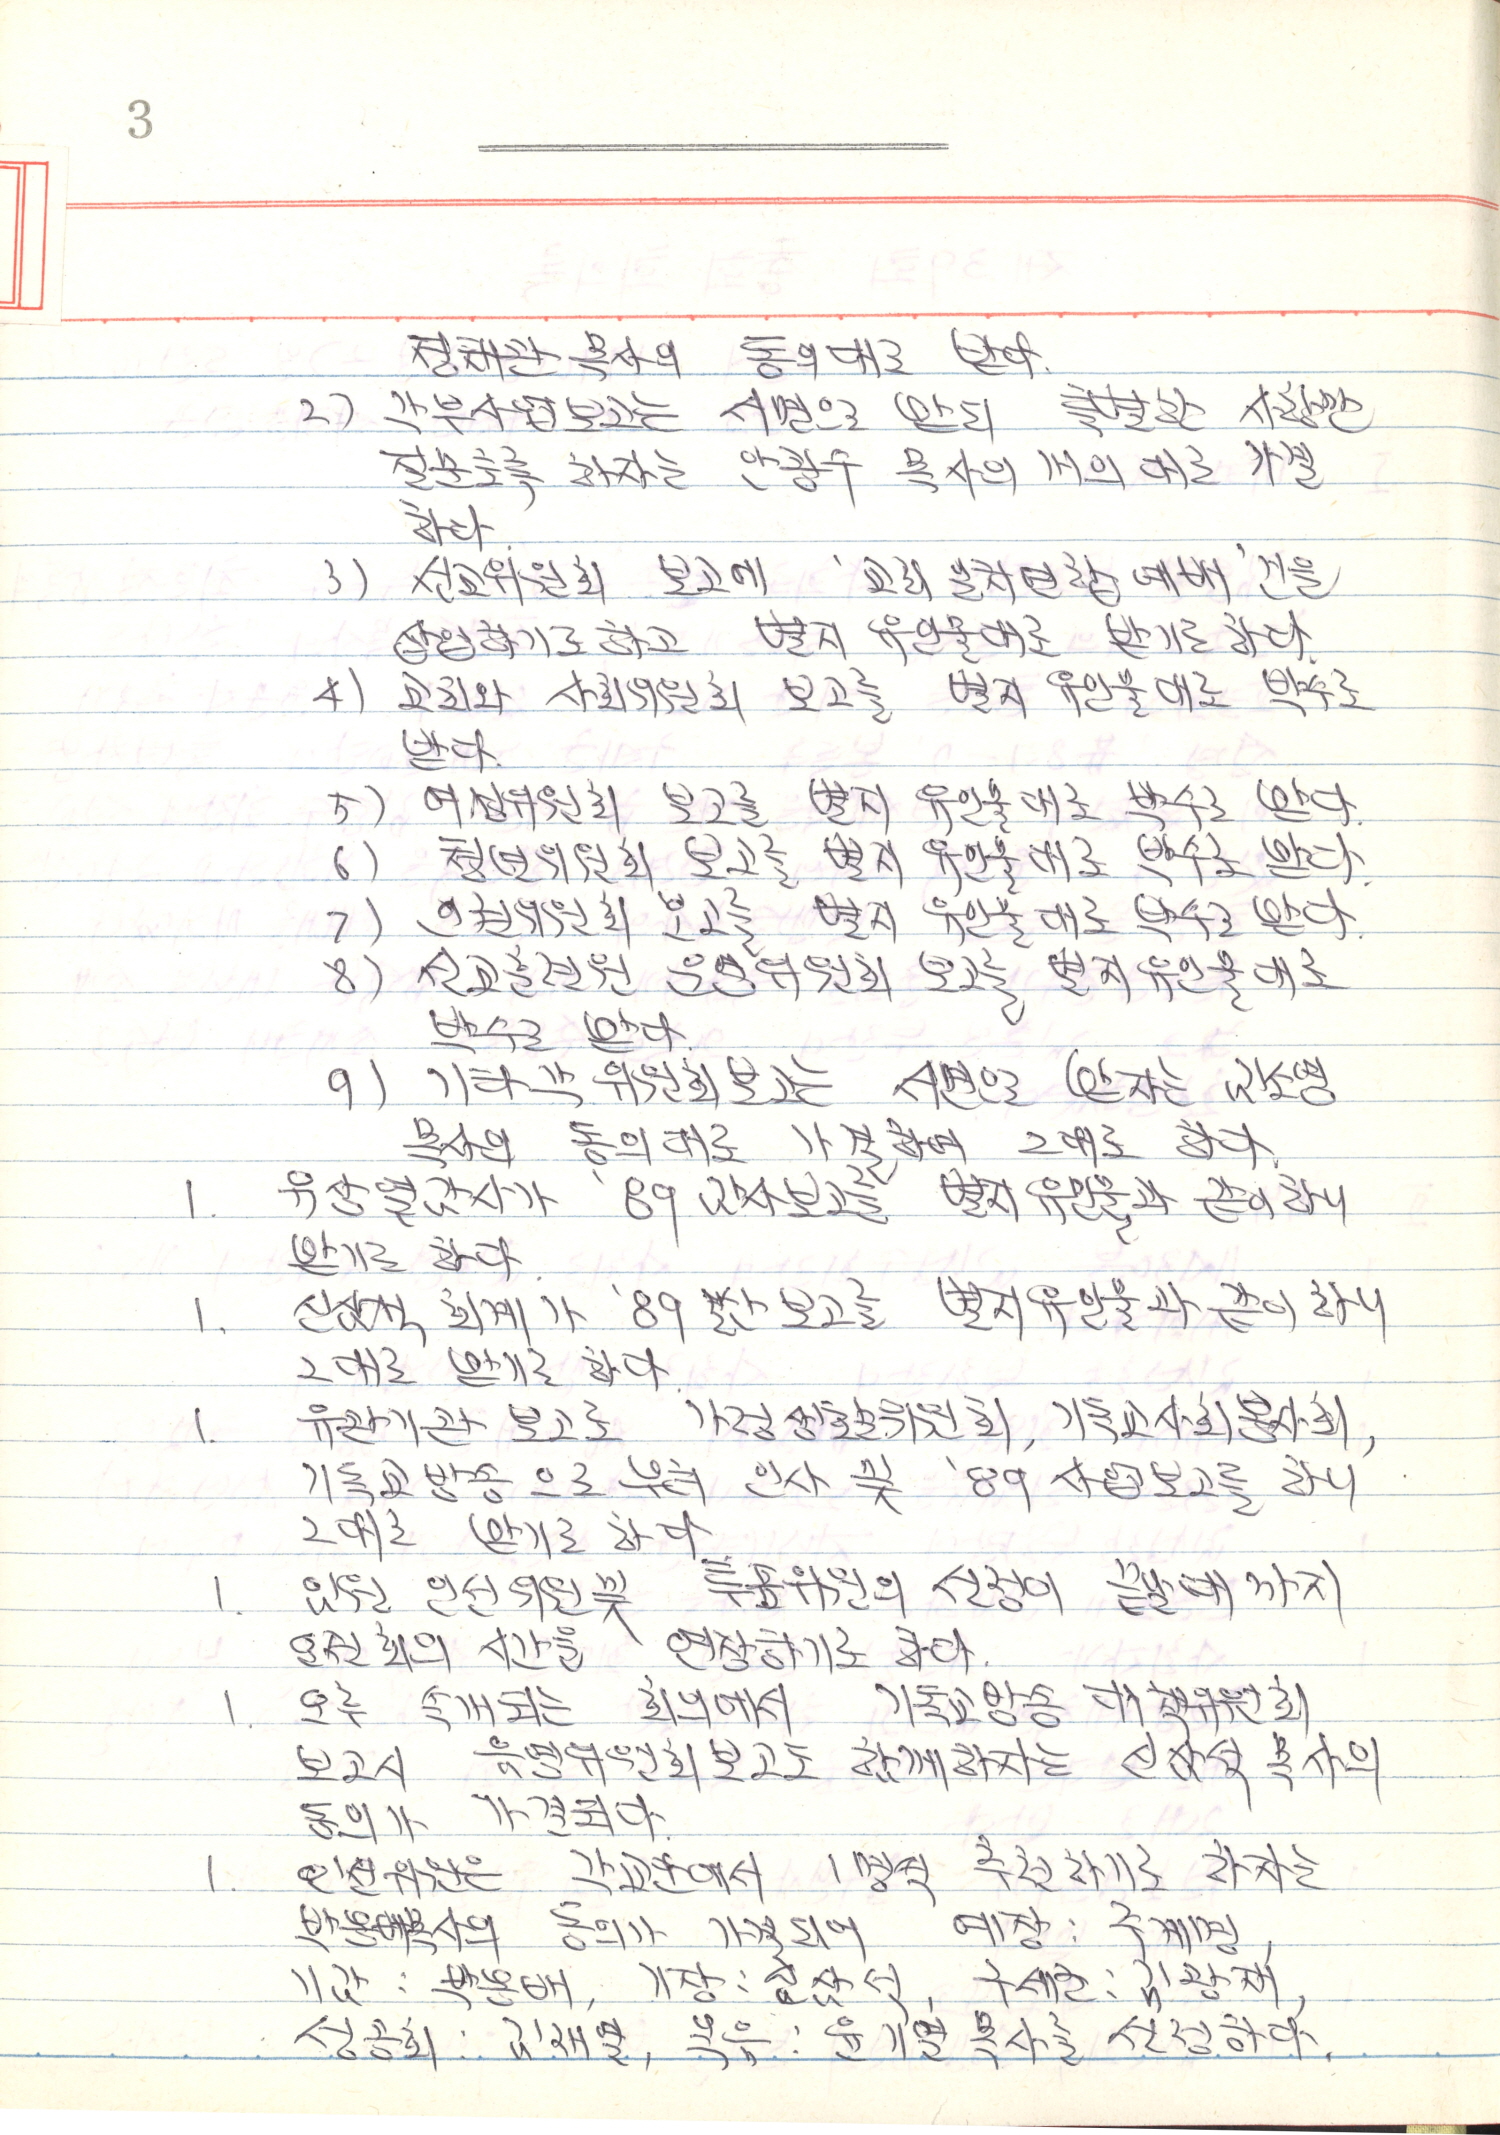 3
정재관 목사의 동의대로 받다.
2) 각부사업보고는 서면으로 받되 특별한 사항만
질문토록 하자는 안광수 목사의 개의대로 가결
하다.
3) 선교위원회 보고에 '교회일치연합예배' 건을
삽입하기로 하고 별지 유인물대로 받기로 하다.
4) 교회와 사회위원회 보고를 별지 유인물대로 박수로
받다.
5) 여성위원회 보고를 별지 유인물대로 박수로 받다.
6) 청년위원회 보고를 별지 유인물대로 박수로 받다.
7) 인권위원회 보고를 별지 유인물대로 박수로 받다.
8) 선교훈련원 운영위원회 보고를 별지 유인물대로
박수로 받다.
9) 기타 각 위원회보고는 서면으로 받자는 김소영
목사의 동의대로 가결하여 그대로 하다.
1. 유상열감사가 '89 감사보고를 별지유인물과 같이하니
받기로 하다.
1. 회계가 '89 결산보고를 별지유인물과 같이 하니
그대로 받기로 하다.
1. 유관기관 보고로 가정생활위원회, 기독교사회봉사회,
기독교방송으로부터 인사 및 '89 사업보고를 하니
그대로 받기로 하다
1. 임원 인선위원 및 특별위원의 선정이 끝날때까지
오전 회의 시간을 연장하기로 하다.
1. 오후 속개되는 회의에서 기독교방송 대책위원회
보고시 운영위원회보고도 함께하자는 신삼석 목사의
동의가 가결되다.
1. 인선위원은 각교단에서 1명씩 추천하기로 하자는
박봉배목사의 동의가 가결되어 예장: 주계명,
기감: 박봉배, 기장: 신삼석, 구세군: 김광재,
성공회: 김재열, 복음: 윤기열 목사를 선정하다.